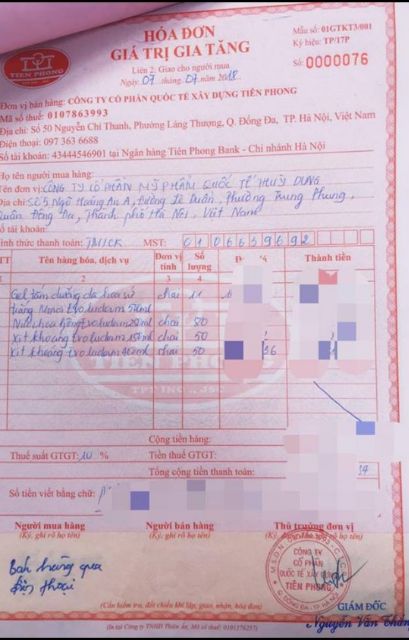 HÓA ĐƠN
GIÁ TRỊ GIA TĂNG
Liên 2: Giao cho người mua
Ngày 07 tháng 07 năm 2018
Mẫu số: 01GTKT3/001
Ký hiệu: TP/17P
Số: 0000076
TIEN PHONG
Đơn vị bán hàng: CÔNG TY CỔ PHẦN QUỐC TẾ XÂY DỰNG TIÊN PHONG
Mã số thuế: 0107863993
Địa chỉ: Số 50 Nguyễn Chí Thanh, Phường Láng Thượng, Q. Đống Đa, TP. Hà Nội, Việt Nam
Điện thoại: 097 363 6688
Số tài khoản: 43444546901 tại Ngân hàng Tiên Phong Bank - Chi nhánh Hà Nội
Họ tên người mua hàng:
Tên đơn vị: CÔNG TY CỔ PHẦN MỸ PHẨM QUỐC TẾ THUỲ DUNG
Địa chỉ: Số 5 Ngõ Hoàng An A, Đường Lê Duẩn, Phường Trung Phụng,
Quận Đống Đa, Thành phố Hà Nội, Việt Nam
Số tài khoản
Hình thức thanh toán: TM/CK MST: 0106659692
TT Tên hàng hóa, dịch vụ Đơn vị tính Số lượng Thành tiền
2 3 4
Gel tắm dưỡng da chai 11
trắng evoluderm 500ml
Nước hoa hồng Evoluderm 250ml chai 80
Xịt khoáng Evoluderm 150ml chai 50
Xịt khoáng Evoluderm 400ml chai 50 36
Cộng tiền hàng:
Thuế suất GTGT: 10 % Tiền thuế GTGT:
Tổng cộng tiền thanh toán:
Số tiền viết bằng chữ:
Người mua hàng Người bán hàng Thủ trưởng đơn vị
(Ký, ghi rõ họ tên) (Ký, ghi rõ họ tên)
Bán hàng qua
điện thoại
CÔNG TY
CỔ PHẦN
QUỐC TẾ XÂY DỰNG
TIÊN PHONG
GIÁM ĐỐC
Nguyễn Văn
(Cần kiểm tra, đối chiếu khi lập, giao, nhận hóa đơn)